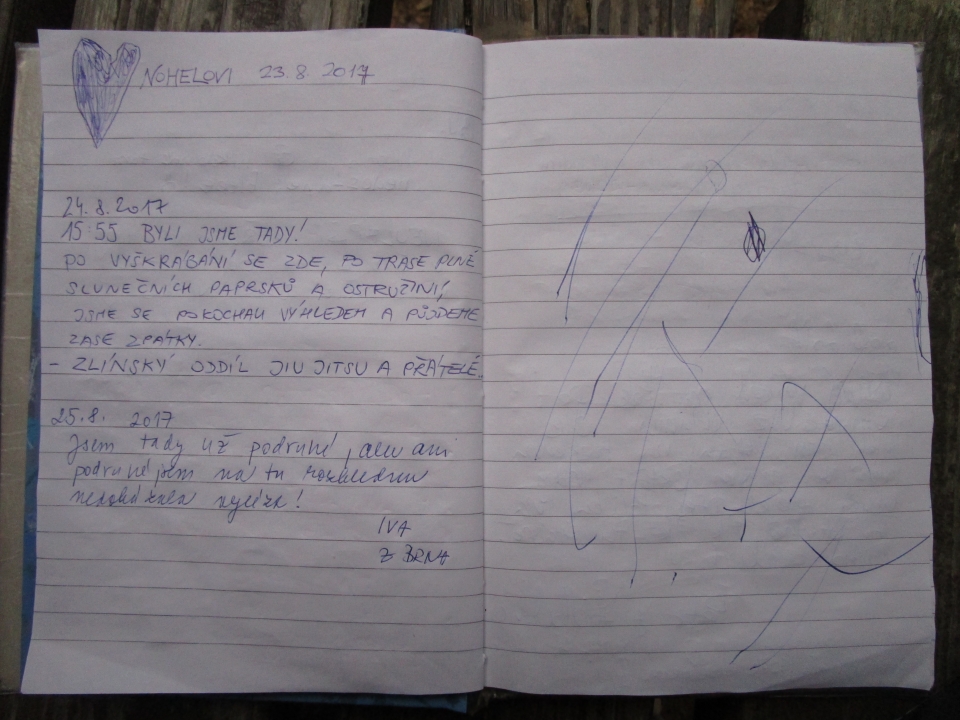 NOHELOVI 23.8.2017
24.8.2017
15:55 BYLI JSME TADY!
PO VYŠKRÁBÁNÍ SE ZDE, PO TRASE PLNÉ
SLUNEČNÍCH PAPRSKŮ A OSTRUŽINÍ,
JSME SE POKOCHALI VÝHLEDEM A PŮJDEME
ZASE ZPÁTKY.
- ZLÍNSKÝ ODDÍL JIU JITSU A PŘÁTELÉ..
25.8. 2017
Jsem tady už podruhé, ale ani
podruhé jsem na tu rozhlednu
nedokázala vylézt!
IVA
Z BRNA